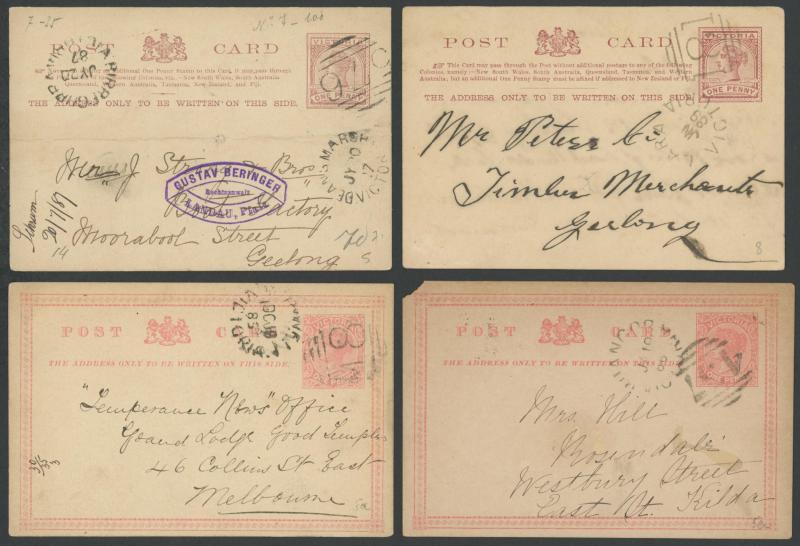 7-25
No 7-100
POST CARD
VICTORIA
ONE PENNY
THE ADDRESS ONLY TO BE WRITTEN ON THIS SIDE.
JY 20
87
GUSTAV BERINGER
Rechtsanwalt
LANDAU, Pfalz
Factory
Moorabool Street
Geelong
20/7/87
14
POST CARD
VICTORIA
ONE PENNY
This Card may pass through the Post without additional postage to any of the following
Colonies, namely:—New South Wales, South Australia, Queensland, Tasmania, and Western
Australia; but an additional One Penny Stamp must be affixed if addressed to New Zealand or Fiji.
THE ADDRESS ONLY TO BE WRITTEN ON THIS SIDE.
Mr Peters Co
Timber Merchants
Geelong
8
POST CARD
THE ADDRESS ONLY TO BE WRITTEN ON THIS SIDE.
"Temperance News" Office
Grand Lodge Good Templars
46 Collins St East
Melbourne
5a
POST CARD
THE ADDRESS ONLY TO BE WRITTEN ON THIS SIDE.
Mrs. Hill
Rosendale
Westbury Street
East St. Kilda
5a